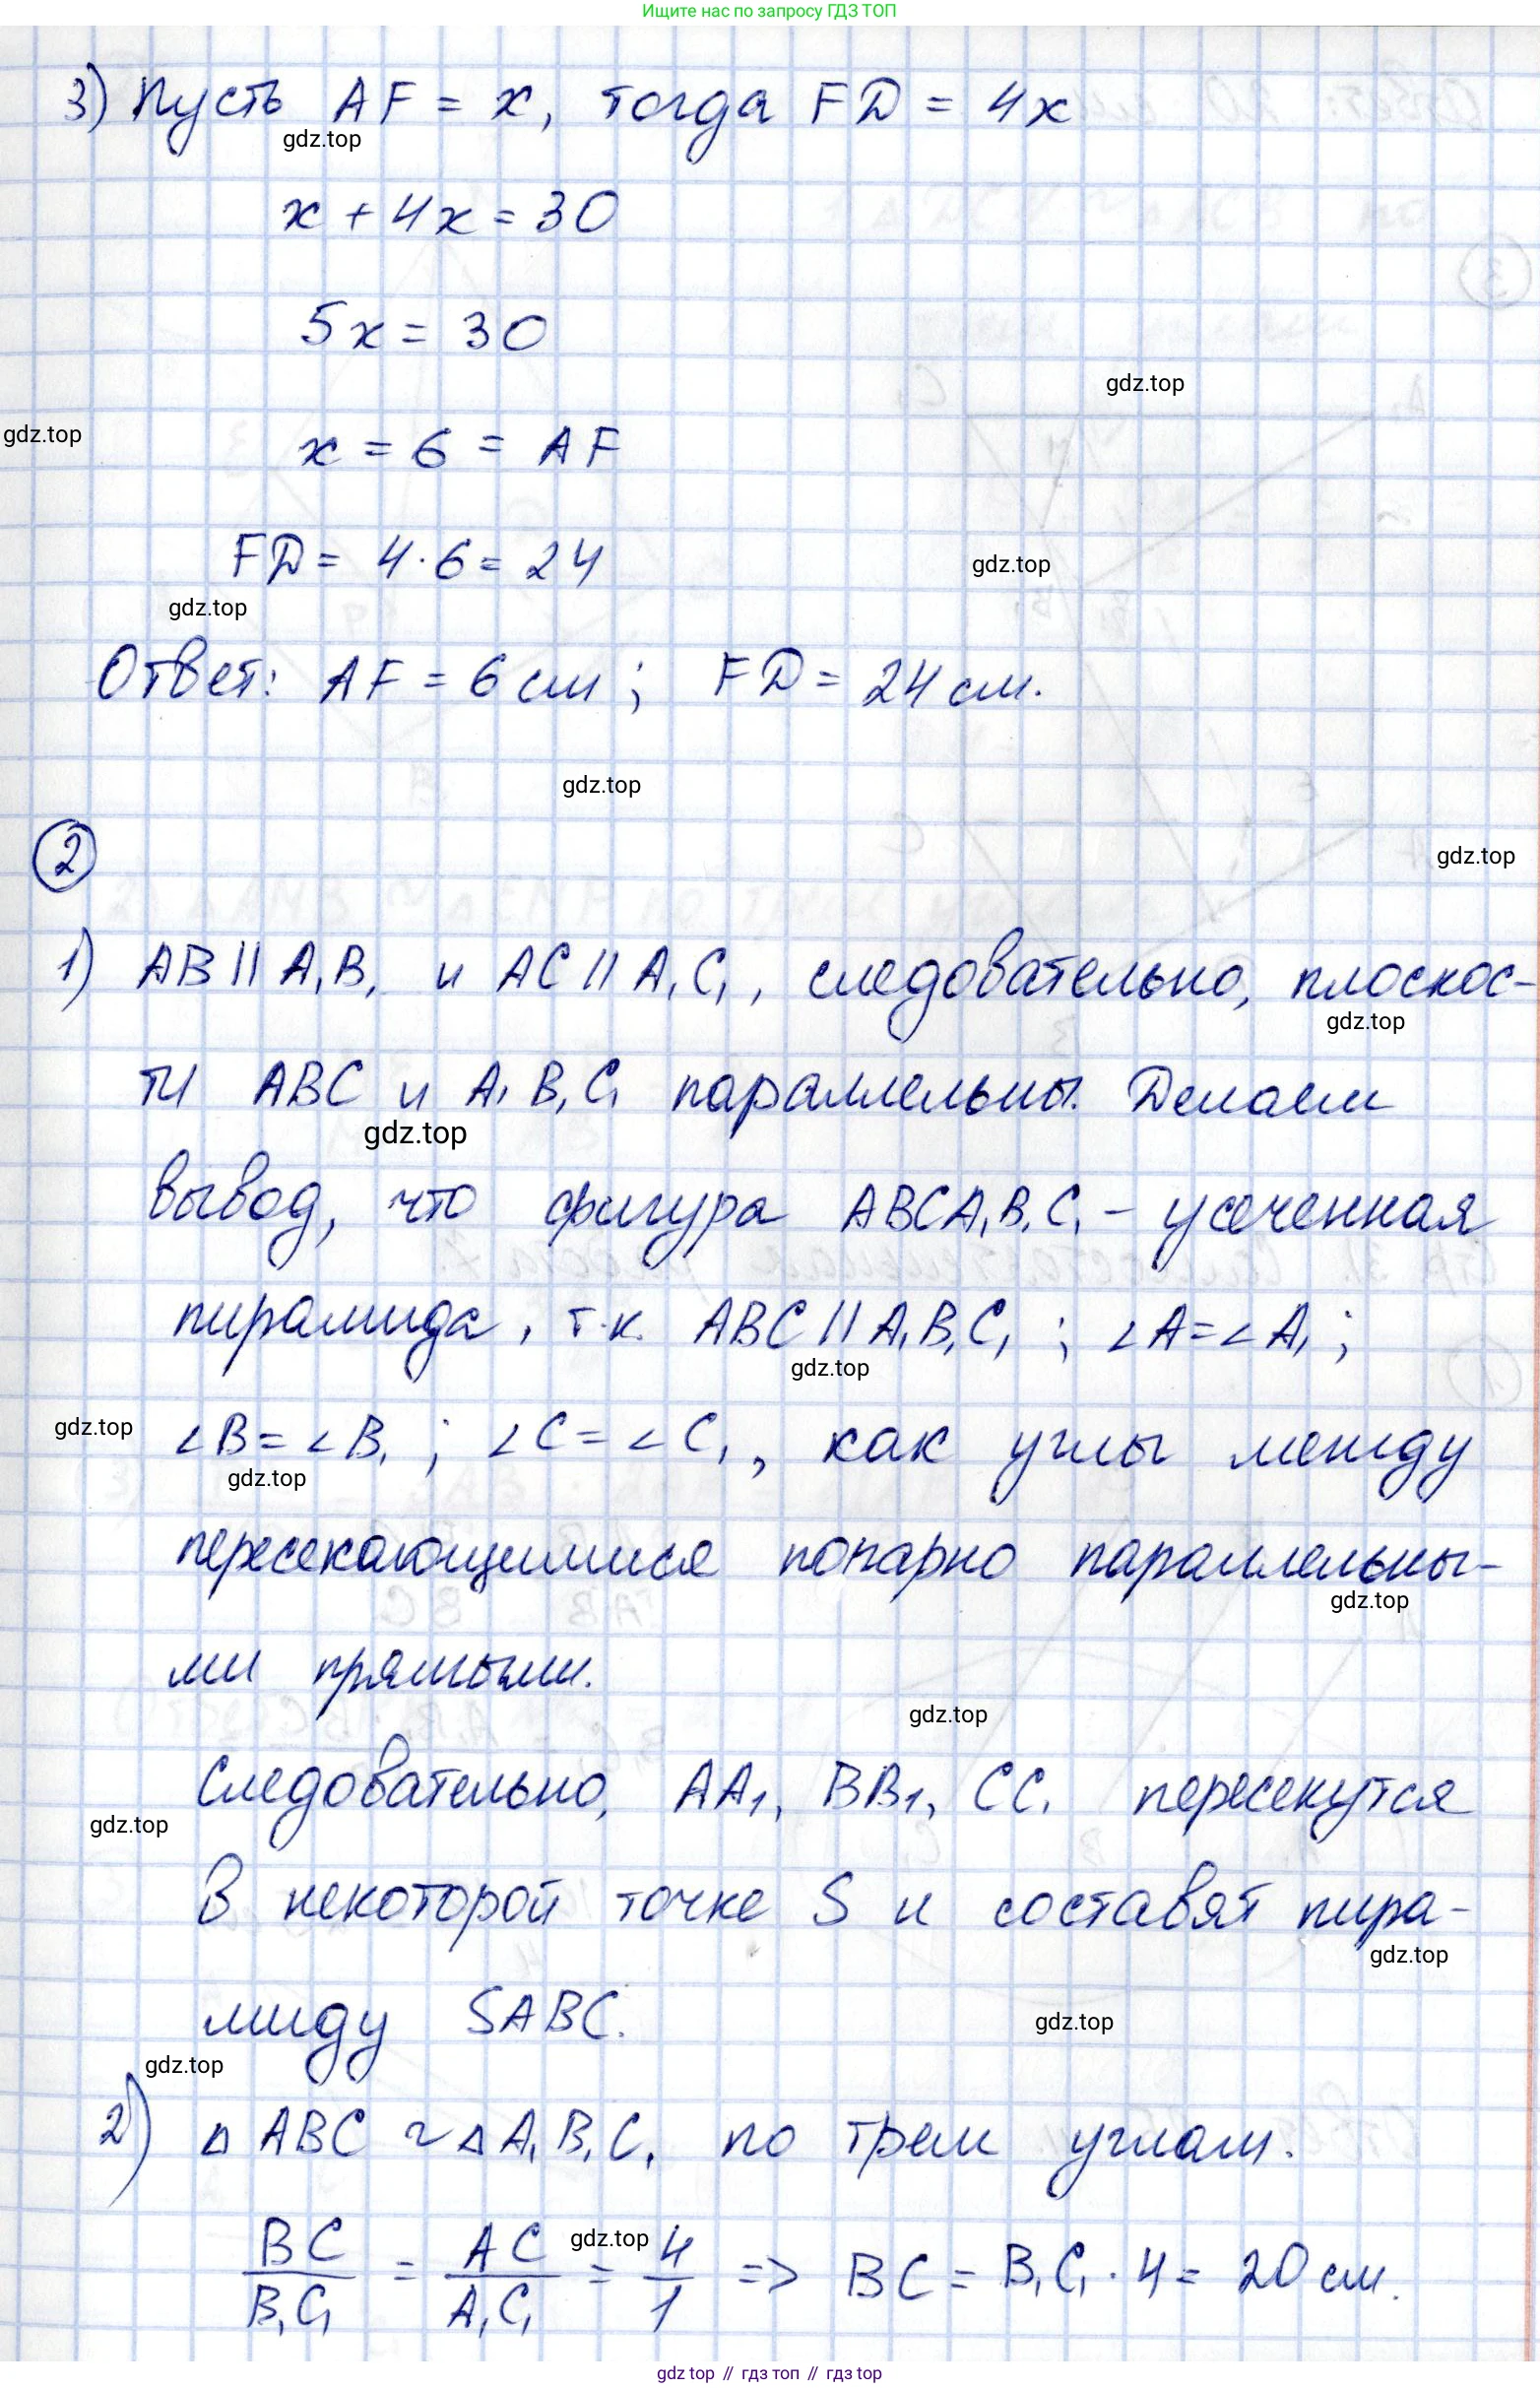 Ищите нас по запросу ГДЗ ТОП
3) Пусть AF = x, тогда FD = 4x
gdz.top
x + 4x = 30
5x = 30
gdz.top
gdz.top
x = 6 = AF
FD = 4·6 = 24
gdz.top
gdz.top
Ответ: AF = 6 см; FD = 24 см.
gdz.top
2
gdz.top
1) AB || A₁B₁ и AC || A₁C₁, следовательно, плоскос-
gdz.top
ти ABC и A₁B₁C₁ параллельны. Делаем
gdz.top
вывод, что фигура ABCA₁B₁C₁ – усеченная
пирамида, т.к. ABC || A₁B₁C₁ ; ∠A = ∠A₁ ;
gdz.top
gdz.top
∠B = ∠B₁ ; ∠C = ∠C₁, как углы между
gdz.top
пересекающимися попарно параллельны-
gdz.top
ми прямыми.
gdz.top
Следовательно, AA₁, BB₁, CC₁ пересекутся
gdz.top
в некоторой точке S и составят пира-
gdz.top
миду SABC.
gdz.top
gdz.top
2) △ABC ~ △A₁B₁C₁ по трем углам.
gdz.top
BC/B₁C₁ = AC/A₁C₁ = 4/1 => BC = B₁C₁ · 4 = 20 см.
gdz top // гдз топ // гdz top